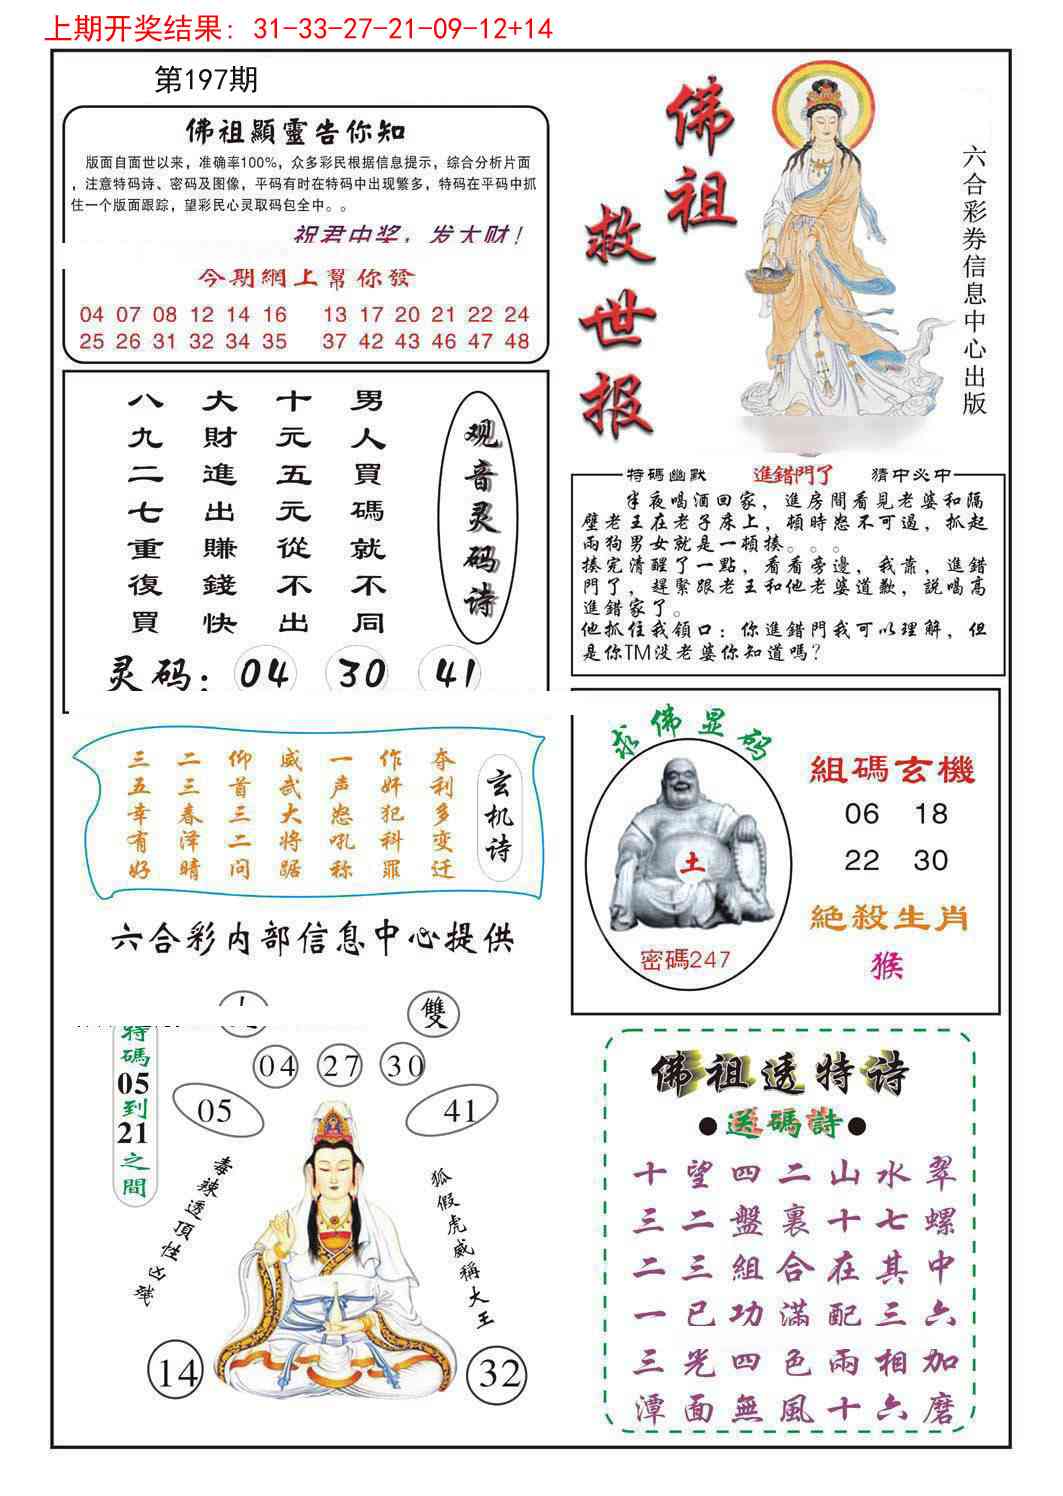 上期开奖结果: 31-33-27-21-09-12+14
第197期
佛祖顯靈告你知
版面自面世以来，准确率100%，众多彩民根据信息提示，综合分析片面
，注意特码诗、密码及图像，平码有时在特码中出现繁多，特码在平码中抓
住一个版面跟踪，望彩民心灵取码包全中。。
祝君中奖，发大财！
今期網上幫你發
04 07 08 12 14 16 13 17 20 21 22 24
25 26 31 32 34 35 37 42 43 46 47 48
佛祖
救世报
六合彩券信息中心出版
观音灵码诗
男人買碼就不同
十元五元從不出
大財進出賺錢快
八九二七重復買
灵码：04 30 41
特碼幽默 進錯門了 猜中必中
半夜喝酒回家，進房間看見老婆和隔
壁老王在老子床上，頓時怒不可遏，抓起
兩狗男女就是一頓揍。。。
揍完清醒了一點，看看旁邊，我靠，進錯
門了，趕緊跟老王和他老婆道歉，説喝高
進錯家了。
他抓住我領口：你進錯門我可以理解，但
是你TM没老婆你知道嗎？
玄机诗
夺利多变迁
作奸犯科罪
一声怒吼称
威武大将踞
仰首三二问
二三春泽晴
三五幸有好
六合彩内部信息中心提供
求佛显码
土
密碼247
組碼玄機
06 18
22 30
絶殺生肖
猴
雙
04 27 30
05 41
特碼05到21之間
毒辣透頂性凶残
狐假虎威稱大王
14 32
佛祖透特诗
●送碼詩●
十望四二山水翠
三二盤裏十七螺
二三組合在其中
一已功滿配三六
三光四色兩相加
潭面無風十六磨